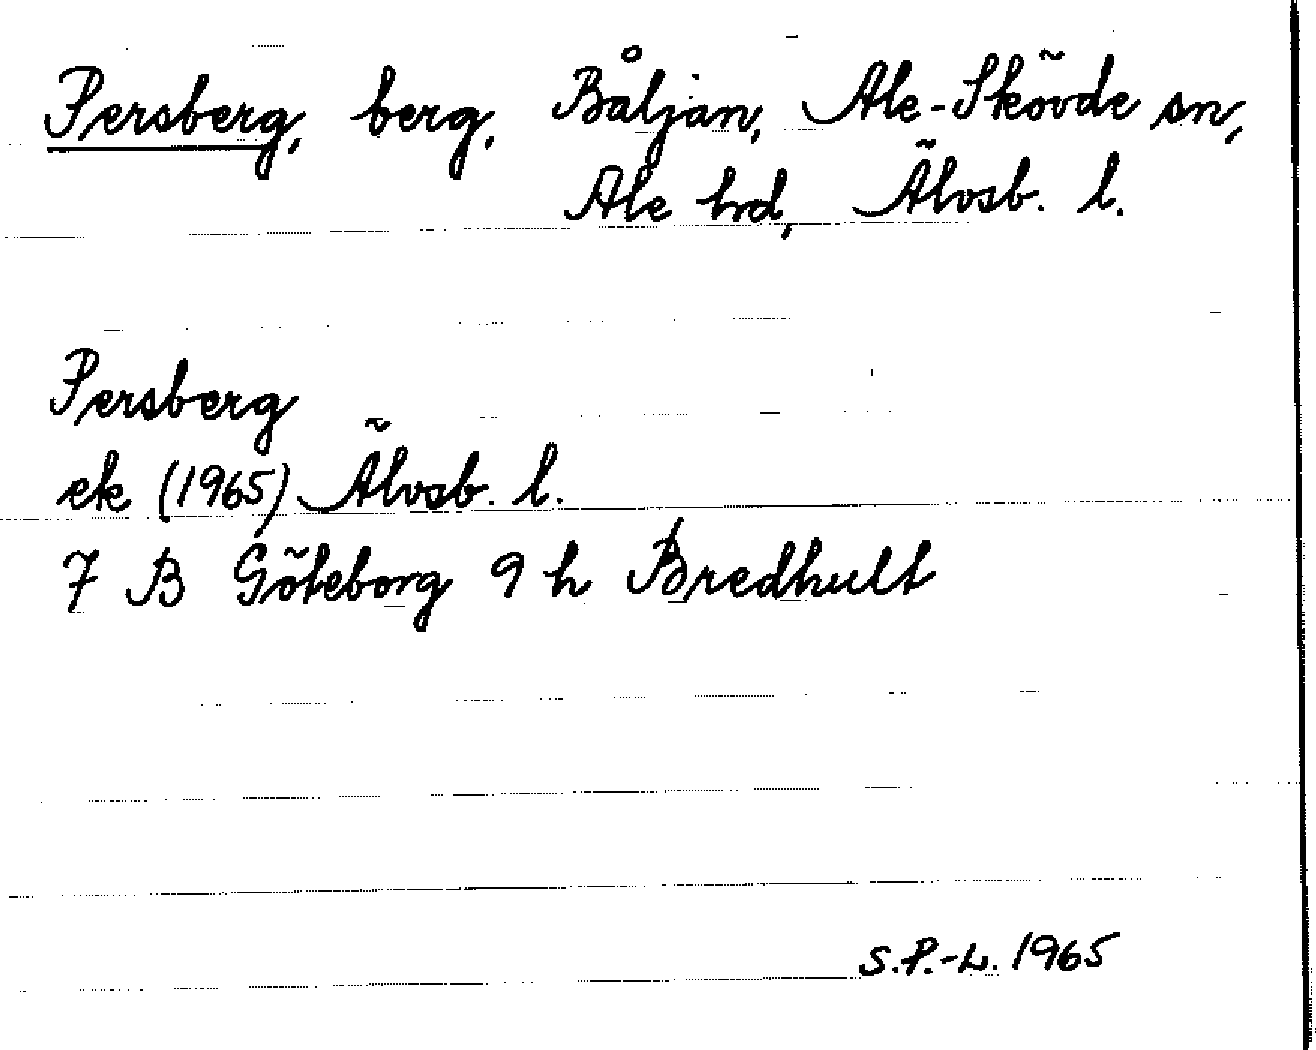 Persberg, berg, Båljan, Ale-Skövde sn,
Ale hrd, Älvsb. l.
Persberg
ek (1965) Älvsb. l.
7 B Göteborg 9 h Bredhult
S.P.-L. 1965